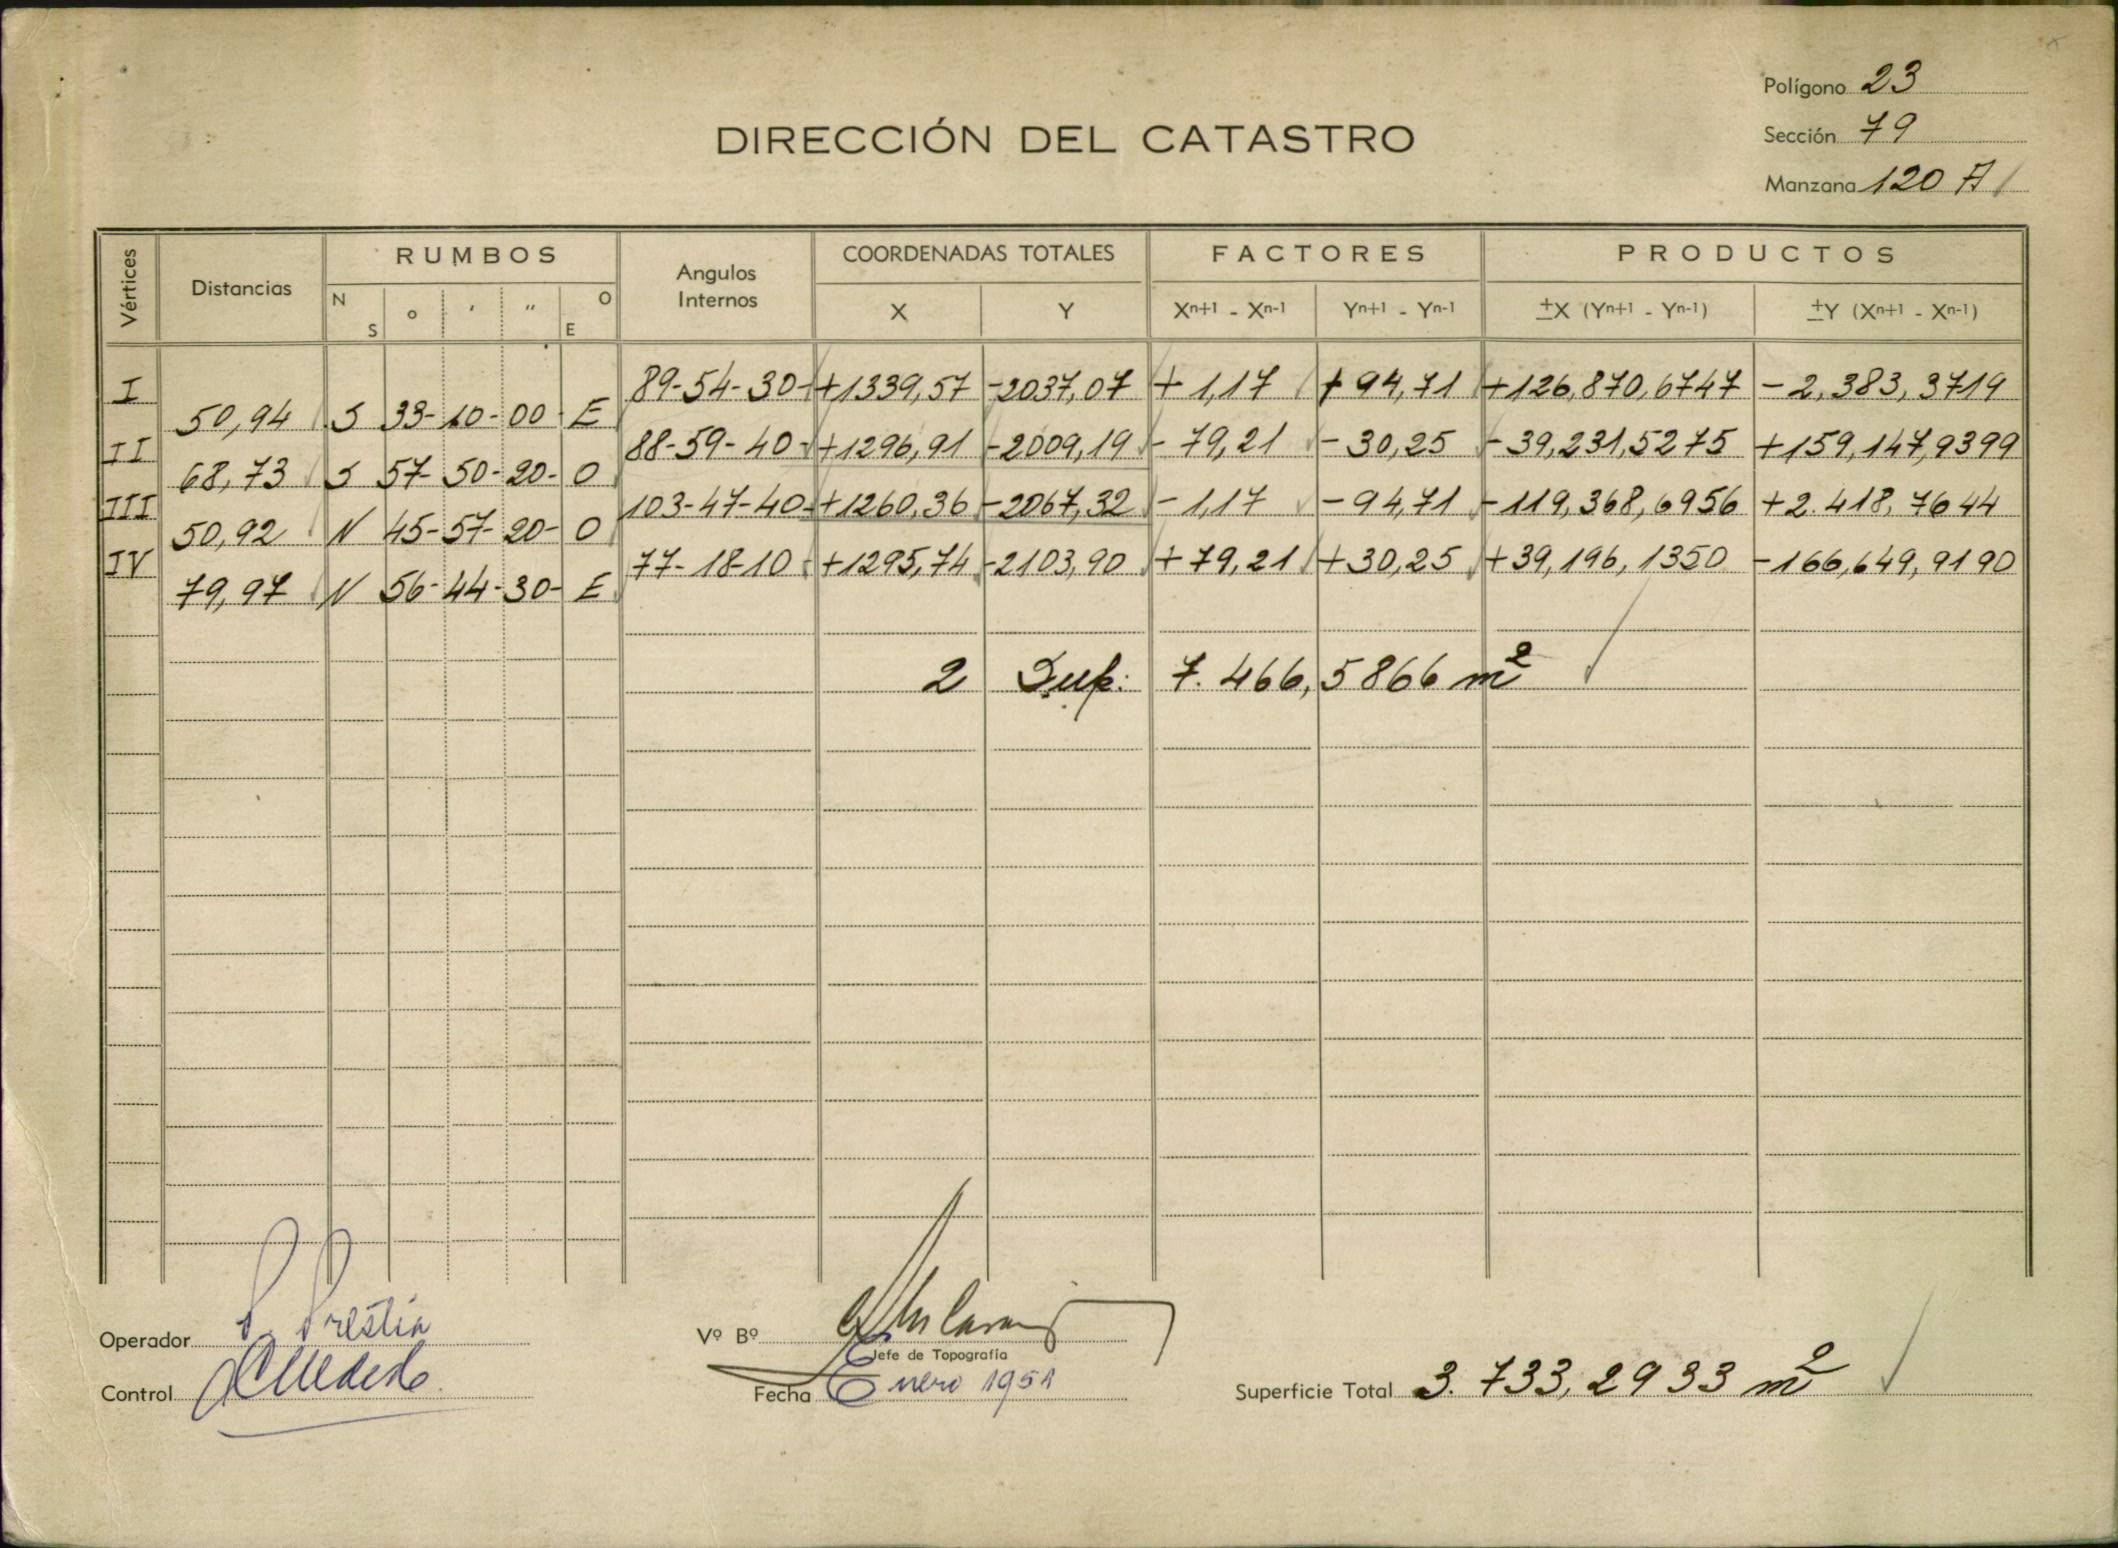 Polígono 23
DIRECCIÓN DEL CATASTRO
Sección 79
Manzana 120 A
Vértices Distancias RUMBOS Angulos Internos COORDENADAS TOTALES FACTORES PRODUCTOS
N S ° ' " O E X Y Xn+1 - Xn-1 Yn+1 - Yn-1 ±X (Yn+1 - Yn-1) ±Y (Xn+1 - Xn-1)
I 89-54-30- +1339,57 -2037,07 + 1,17 + 94,71 +126,870,6747 - 2,383,3719
50,94 S 33- 10- 00- E
II 88-59-40- +1296,91 -2009,19 - 79,21 - 30,25 - 39,231,5275 +159,147,9399
68,73 S 57- 50- 20- O
III 103-47-40- +1260,36 -2067,32 - 1,17 - 94,71 - 119,368,6956 +2.418,7644
50,92 N 45- 57- 20- O
IV 77-18-10 +1295,74 -2103,90 + 79,21 + 30,25 + 39,196,1350 - 166,649,9190
79,97 N 56- 44- 30- E
2 Sup: 7.466,5866 m²
Operador P. Prestia
Vº Bº
Jefe de Topografía
Control
Fecha Enero 1951
Superficie Total 3.733,2933 m²